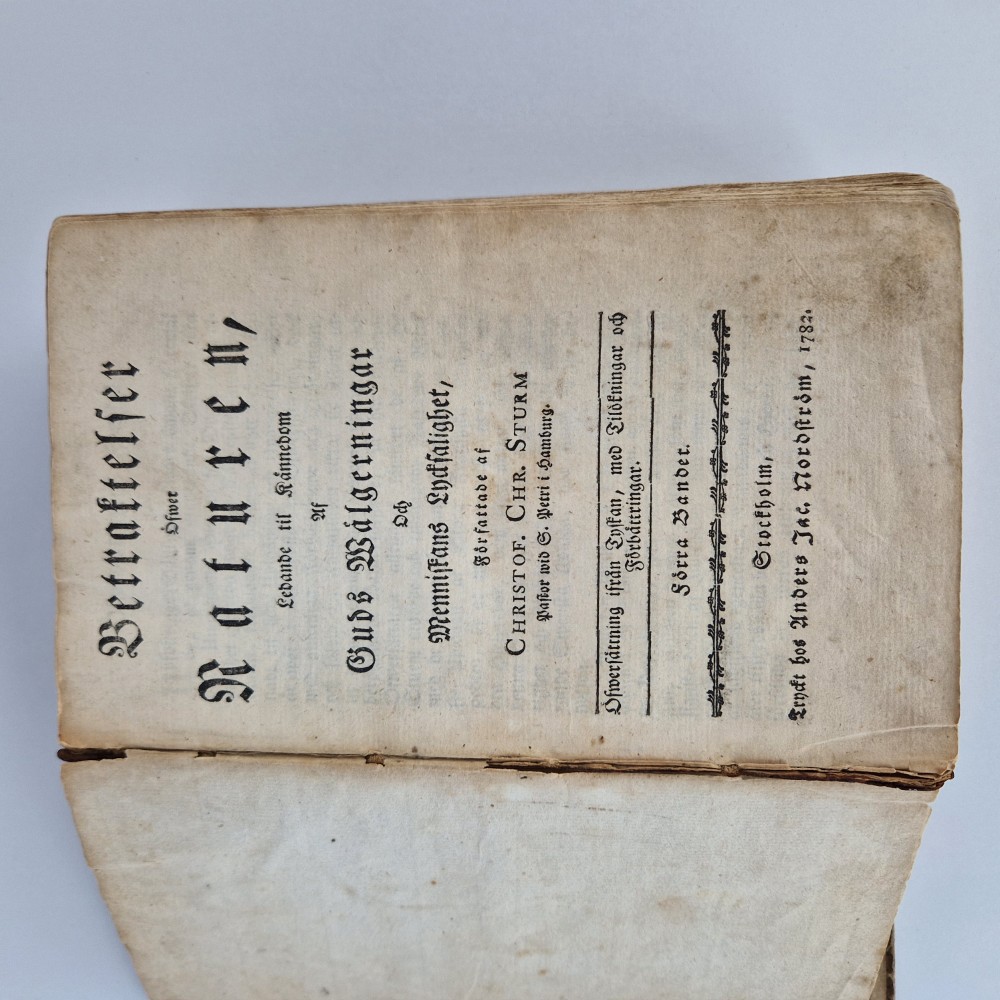 Betraktelser
Öfwer
Naturen,
Ledande til Kännedom
Af
Guds Wälgerningar
Och
Menniskans Lycksalighet,
Författade af
CHRISTOF. CHR. STURM
Pastor wid S. Petri i Hamburg.
Öfwersättning ifrån Tyskan, med Tilökningar och
Förbättringar.
Förra Bandet.
Stockholm,
Tryckt hos Anders Jac. Nordström, 1782.